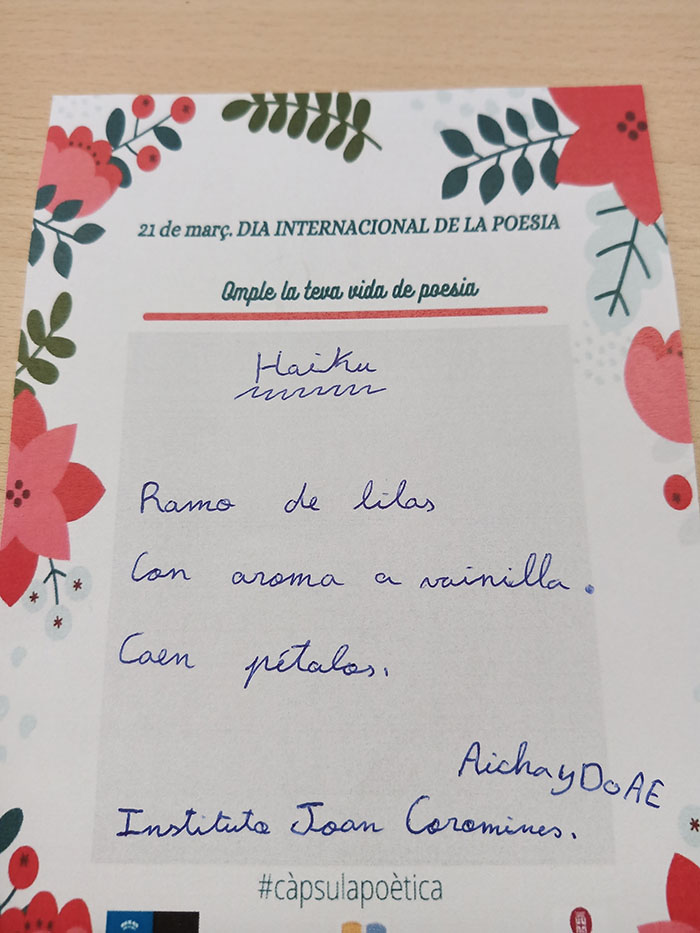 21 de març. DIA INTERNACIONAL DE LA POESIA
Omple la teva vida de poesia
Haiku
Ramo de lilas
Con aroma a vainilla.
Caen pétalos.
Aicha y DoAE
Instituto Joan Coromines.
#càpsulapoètica